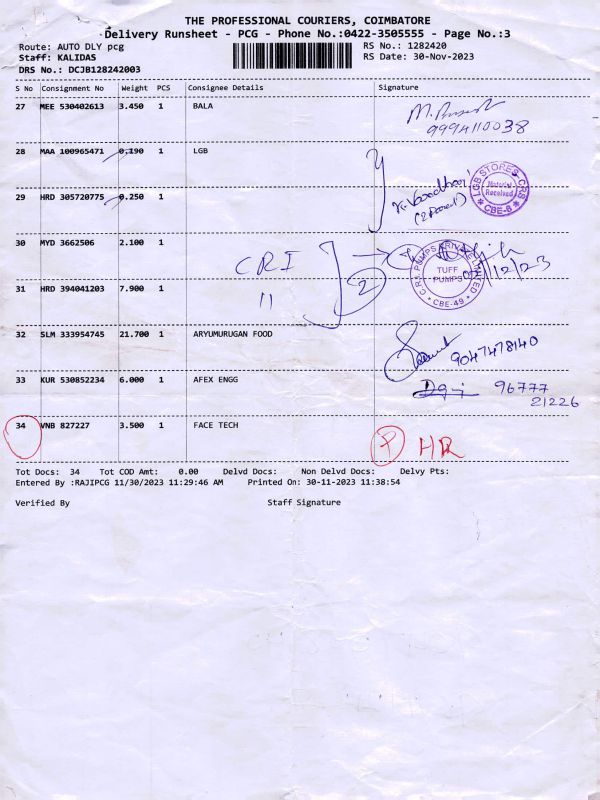 THE PROFESSIONAL COURIERS, COIMBATORE
Delivery Runsheet - PCG - Phone No.:0422-3505555 - Page No.:3
Route: AUTO DLY pcg RS No.: 1282420
Staff: KALIDAS RS Date: 30-Nov-2023
DRS No.: DCJB128242003
S No Consignment No Weight PCS Consignee Details Signature
27 MEE 530402613 3.450 1 BALA
9994110038
28 MAA 100965471 0.190 1 LGB
LGB STORES-CRS Material Received CBE-6
29 HRD 305720775 0.250 1
30 MYD 3662506 2.100 1
CRI 2
C.R.I. PUMPS PRIVATE LIMITED TUFF PUMPS CBE-49
/12/23
31 HRD 394041203 7.900 1
"
32 SLM 333954745 21.700 1 ARYUMURUGAN FOOD
9047478140
33 KUR 530852234 6.000 1 AFEX ENGG
96777
21226
34 VNB 827227 3.500 1 FACE TECH
P HR
Tot Docs: 34 Tot COD Amt: 0.00 Delvd Docs: Non Delvd Docs: Delvy Pts:
Entered By :RAJIPCG 11/30/2023 11:29:46 AM Printed On: 30-11-2023 11:38:54
Verified By Staff Signature